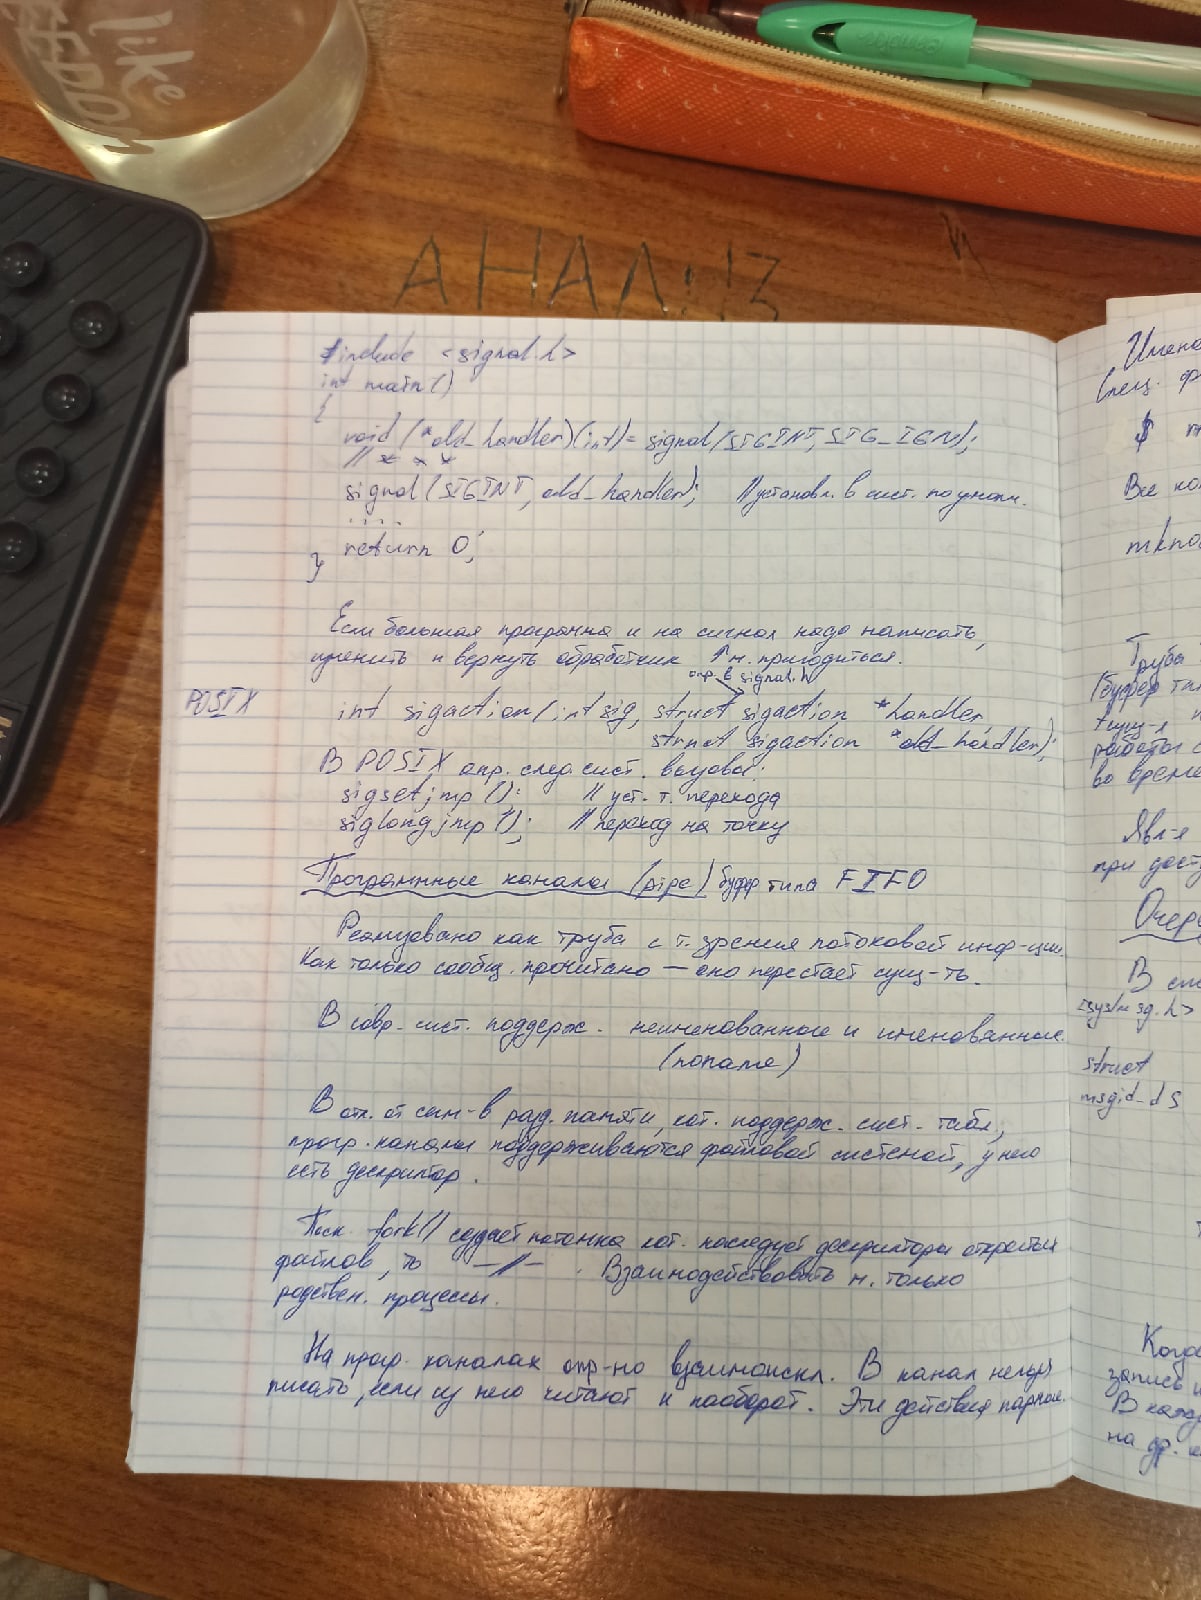 like
FREEDOM
АНАЛИЗ
#include <signal.h>
int main()
{
void (*old_handler)(int) = signal(SIGINT, SIG_IGN);
// * * *
signal(SIGINT, old_handler); // установл. в сист. по умолч.
....
return 0;
}
Если большая программа и на сигнал надо написать,
изменить и вернуть обработчик ↑ м. пригодиться.
опр. в signal.h
POSIX
int sigaction(int sig, struct sigaction *handler,
struct sigaction *old_handler);
В POSIX опр. след. сист. вызовы:
sigsetjmp(); // уст. т. перехода
siglongjmp(); // переход на точку
Программные каналы (pipe) буфер типа FIFO
Реализовано как труба с т. зрения потоковой инф-ции.
Как только сообщ. прочитано — оно перестаёт сущ-ть.
В совр. сист. поддерж. неименованные и именованные.
(noname)
В отл. от сем-в разд. памяти, кот. поддерж. сист. табл.,
прогр. каналы поддерживаются файловой системой, у него
есть дескриптор.
Поск. fork() создаёт потомка кот. наследует дескрипторы открытых
файлов, то —//— . Взаимодействовать м. только
родствен. процессы.
На прогр. каналах опр-но взаимоискл. В канал нельзя
писать, если из него читают и наоборот. Эти действия парные.
Имено
Спец. ф
$
Все
mkno
Труба
(буфер ти
работы с
во време
Явл-я
при дост
Очер
В
<sys/msg.h>
struct
msgid_ds
Когда
запись и
В кажд
на др.